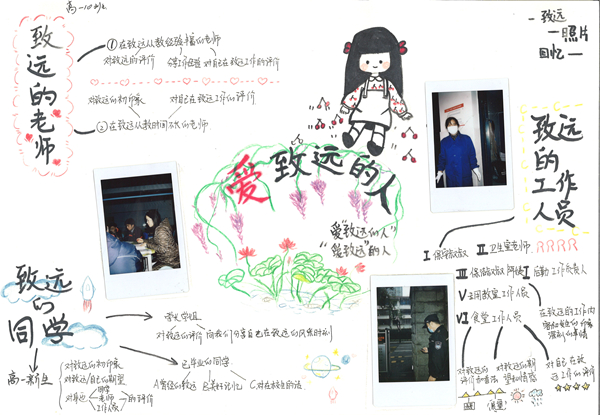 高一10班
致远的老师
①在致远从教经验丰富的老师
对致远的评价
对自己在致远工作的评价
对致远的初印象
对自己在致远工作的评价
②在致远从教时间不长的老师
一致远
一照片
回忆一
爱致远的人
爱"致远的人"
"爱致远"的人
致远的工作人员
Ⅰ保安叔叔
Ⅱ卫生室老师
Ⅲ
Ⅴ
Ⅵ食堂工作人员
在致远的工作内
对致远的评价和看法
对致远的期望和情感
对自己在致远工作的评价
致远的同学
高一新生
对致远的初印象
对致远/自己的期望
对身边
同学
老师
工作人员
的评价
学长学姐
对致远的评价
向我们分享自己在致远的风景时刻
已毕业的同学
A曾经的致远
B美好记忆
C对在校生的话